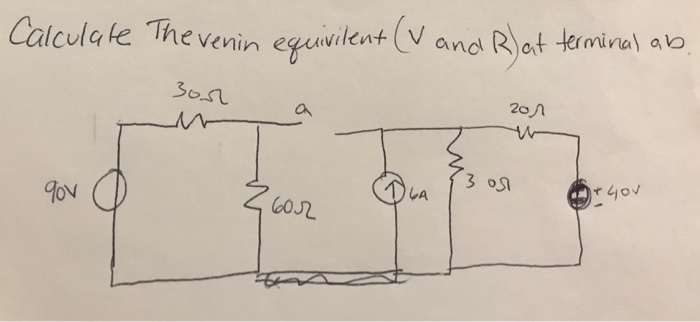 Calculate Thevenin equivilent (V and R) at terminal ab.
30Ω
a
20Ω
90V
60Ω
6A
30Ω
+ 40V
-